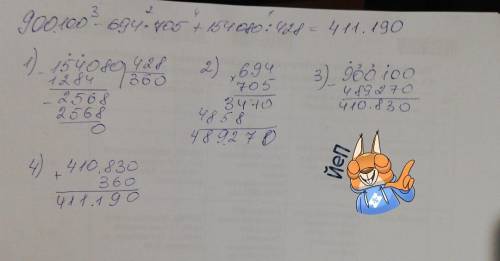 900.100 ³- 694 ²· 705 ⁴+ 154080 ¹: 428 = 411.190
1) - 154080 | 428
1284 | 360
- 2568
2568
0
2) × 694
705
3470
4858
489270
3) - 900100
489270
410.830
4) + 410.830
360
411.190
йеп